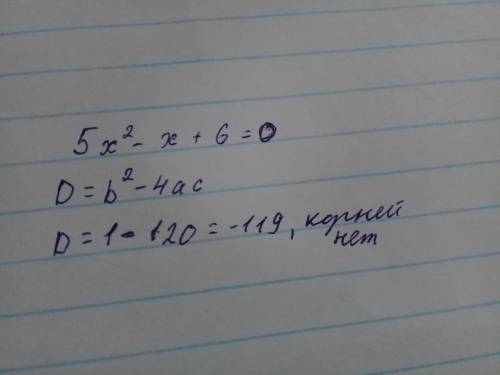 5x² - x + 6 = 0
D = b² - 4ac
D = 1 - 120 = -119, корней
нет